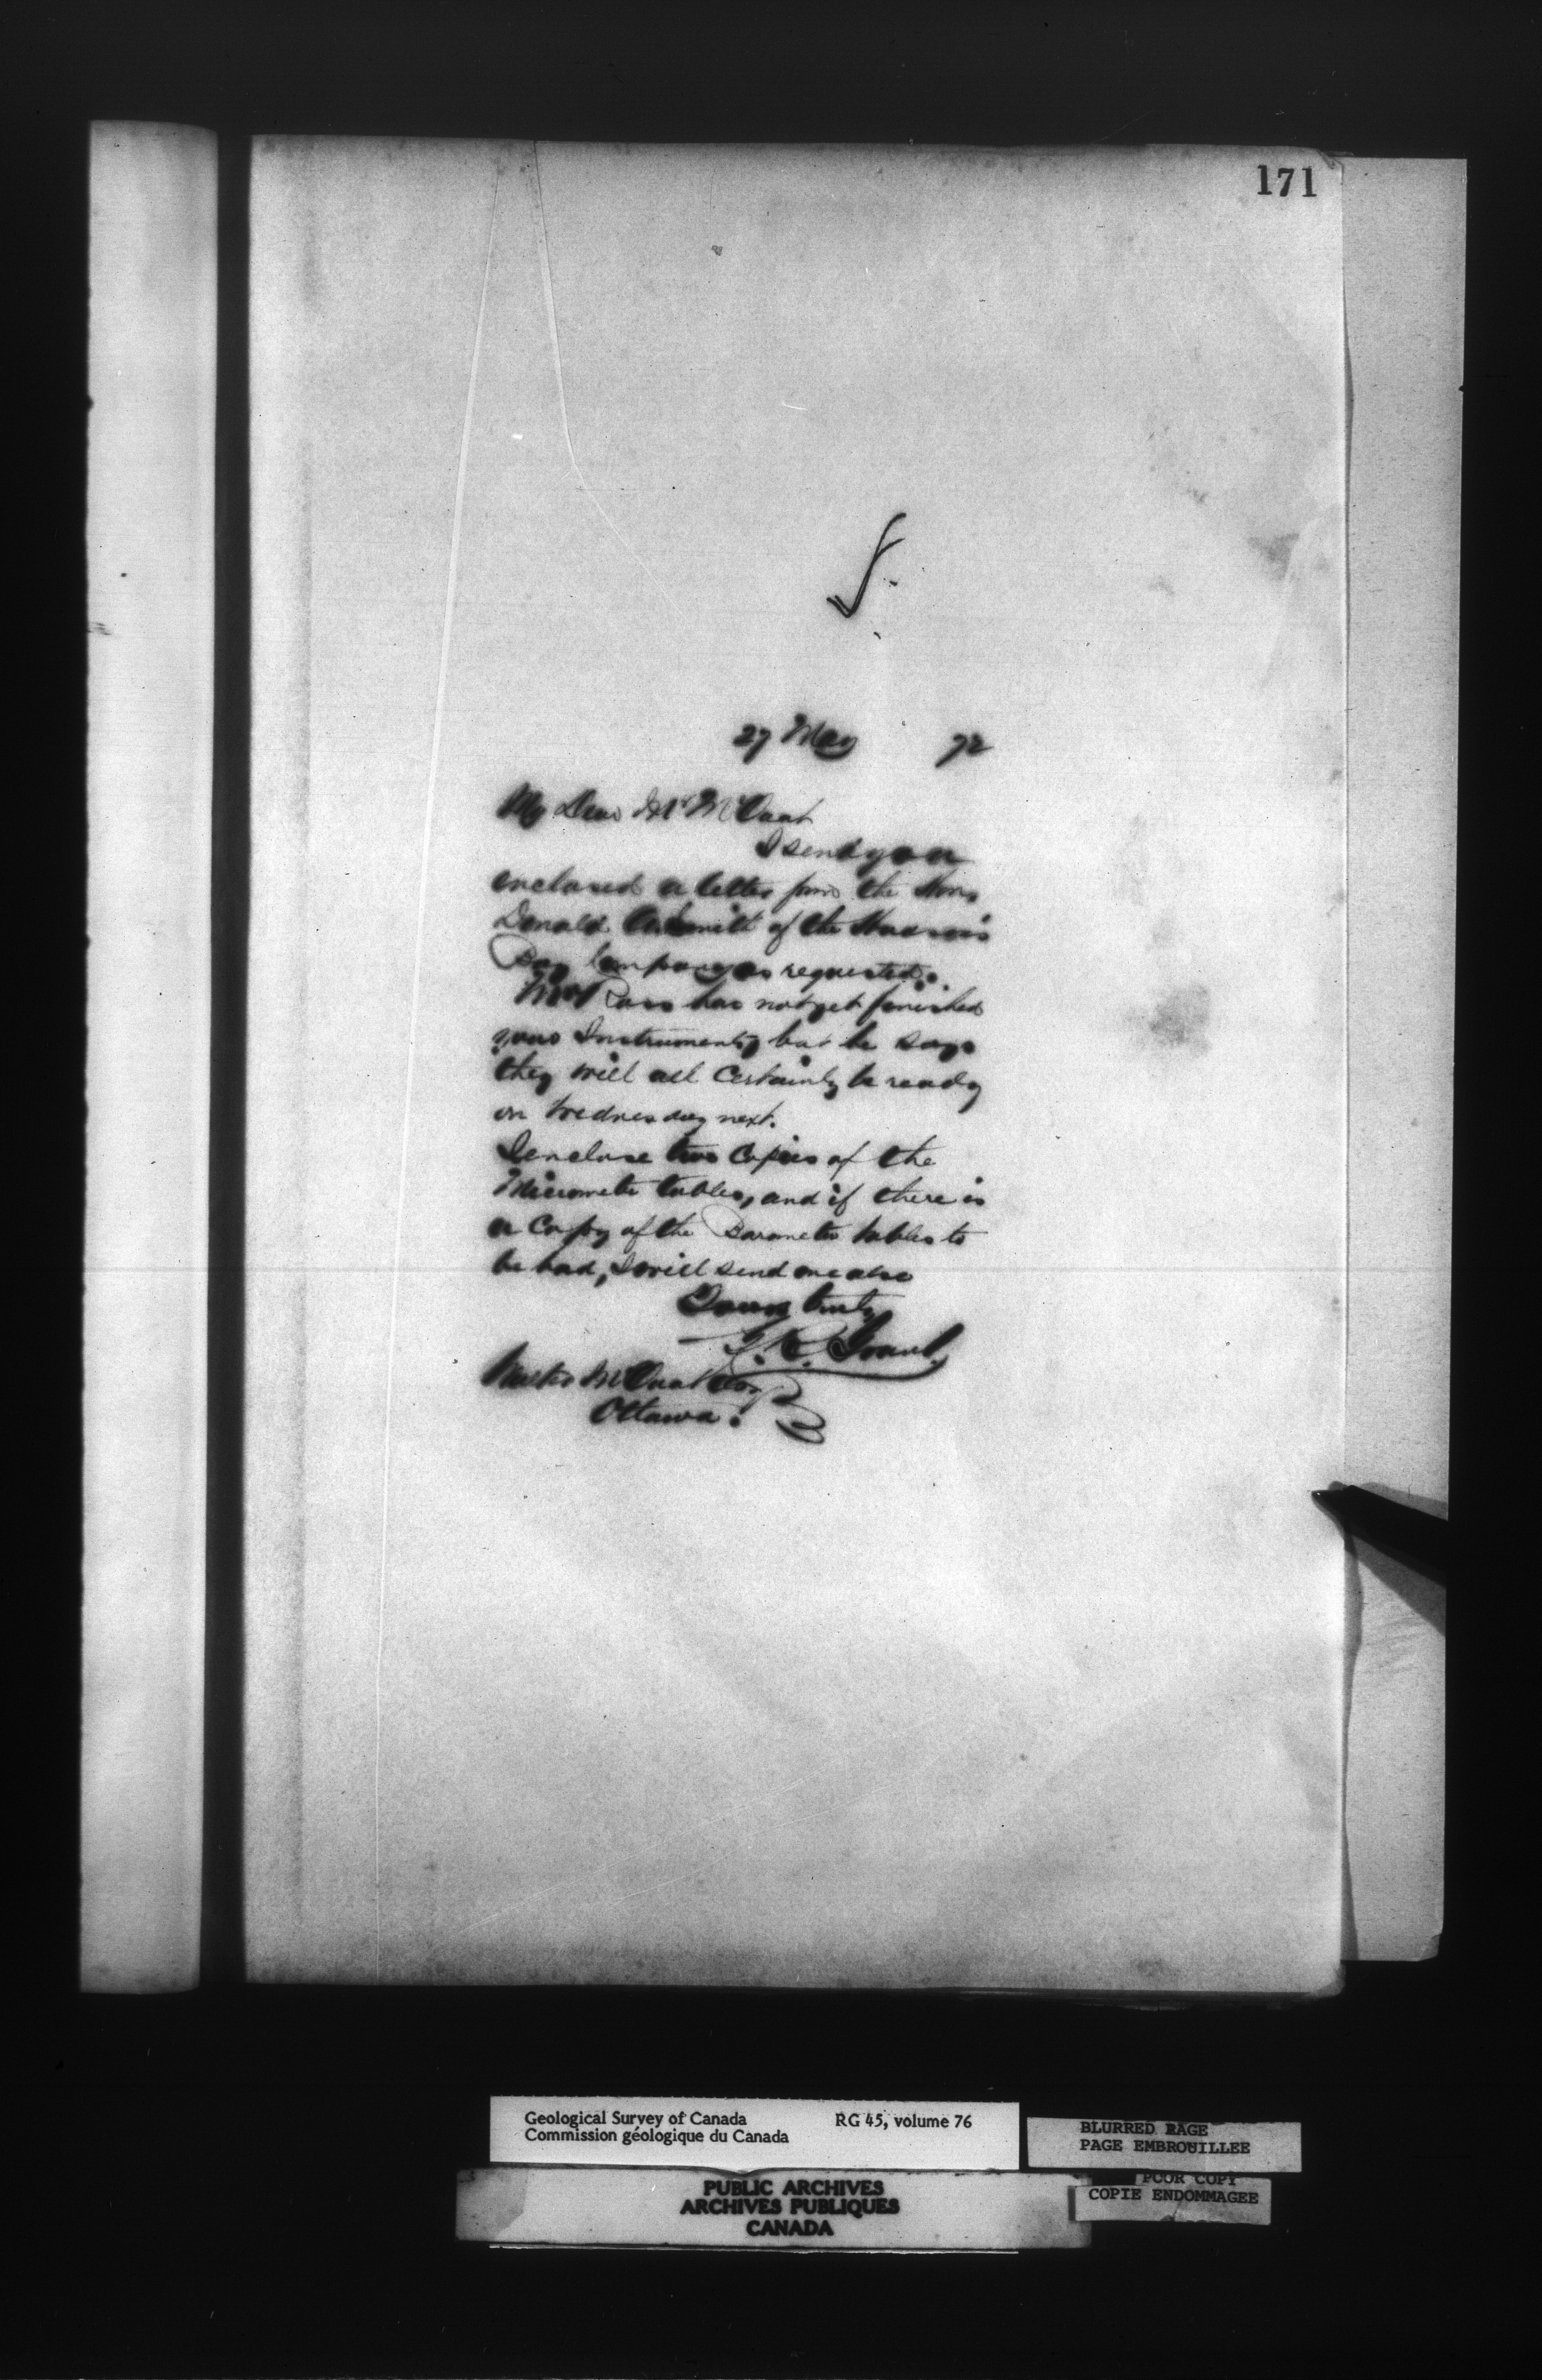 171
27 May 72
My Dear Mr McOuat
I send you
enclosed a letter from the Hon.
Donald A. Smith of the Hudson's
Bay Company as requested.
Mr has not yet finished
your Instruments, but he says
they will all certainly be ready
on Wednesday next.
I enclose two Copies of the
Micrometer tables, and if there is
a Copy of the Barometer tables to
be had, I will send one also
Yours truly
Grant.
Walter McOuat Esq
Ottawa.
Geological Survey of Canada RG 45, volume 76
Commission géologique du Canada
BLURRED PAGE
PAGE EMBROUILLEE
POOR COPY
COPIE ENDOMMAGEE
PUBLIC ARCHIVES
ARCHIVES PUBLIQUES
CANADA